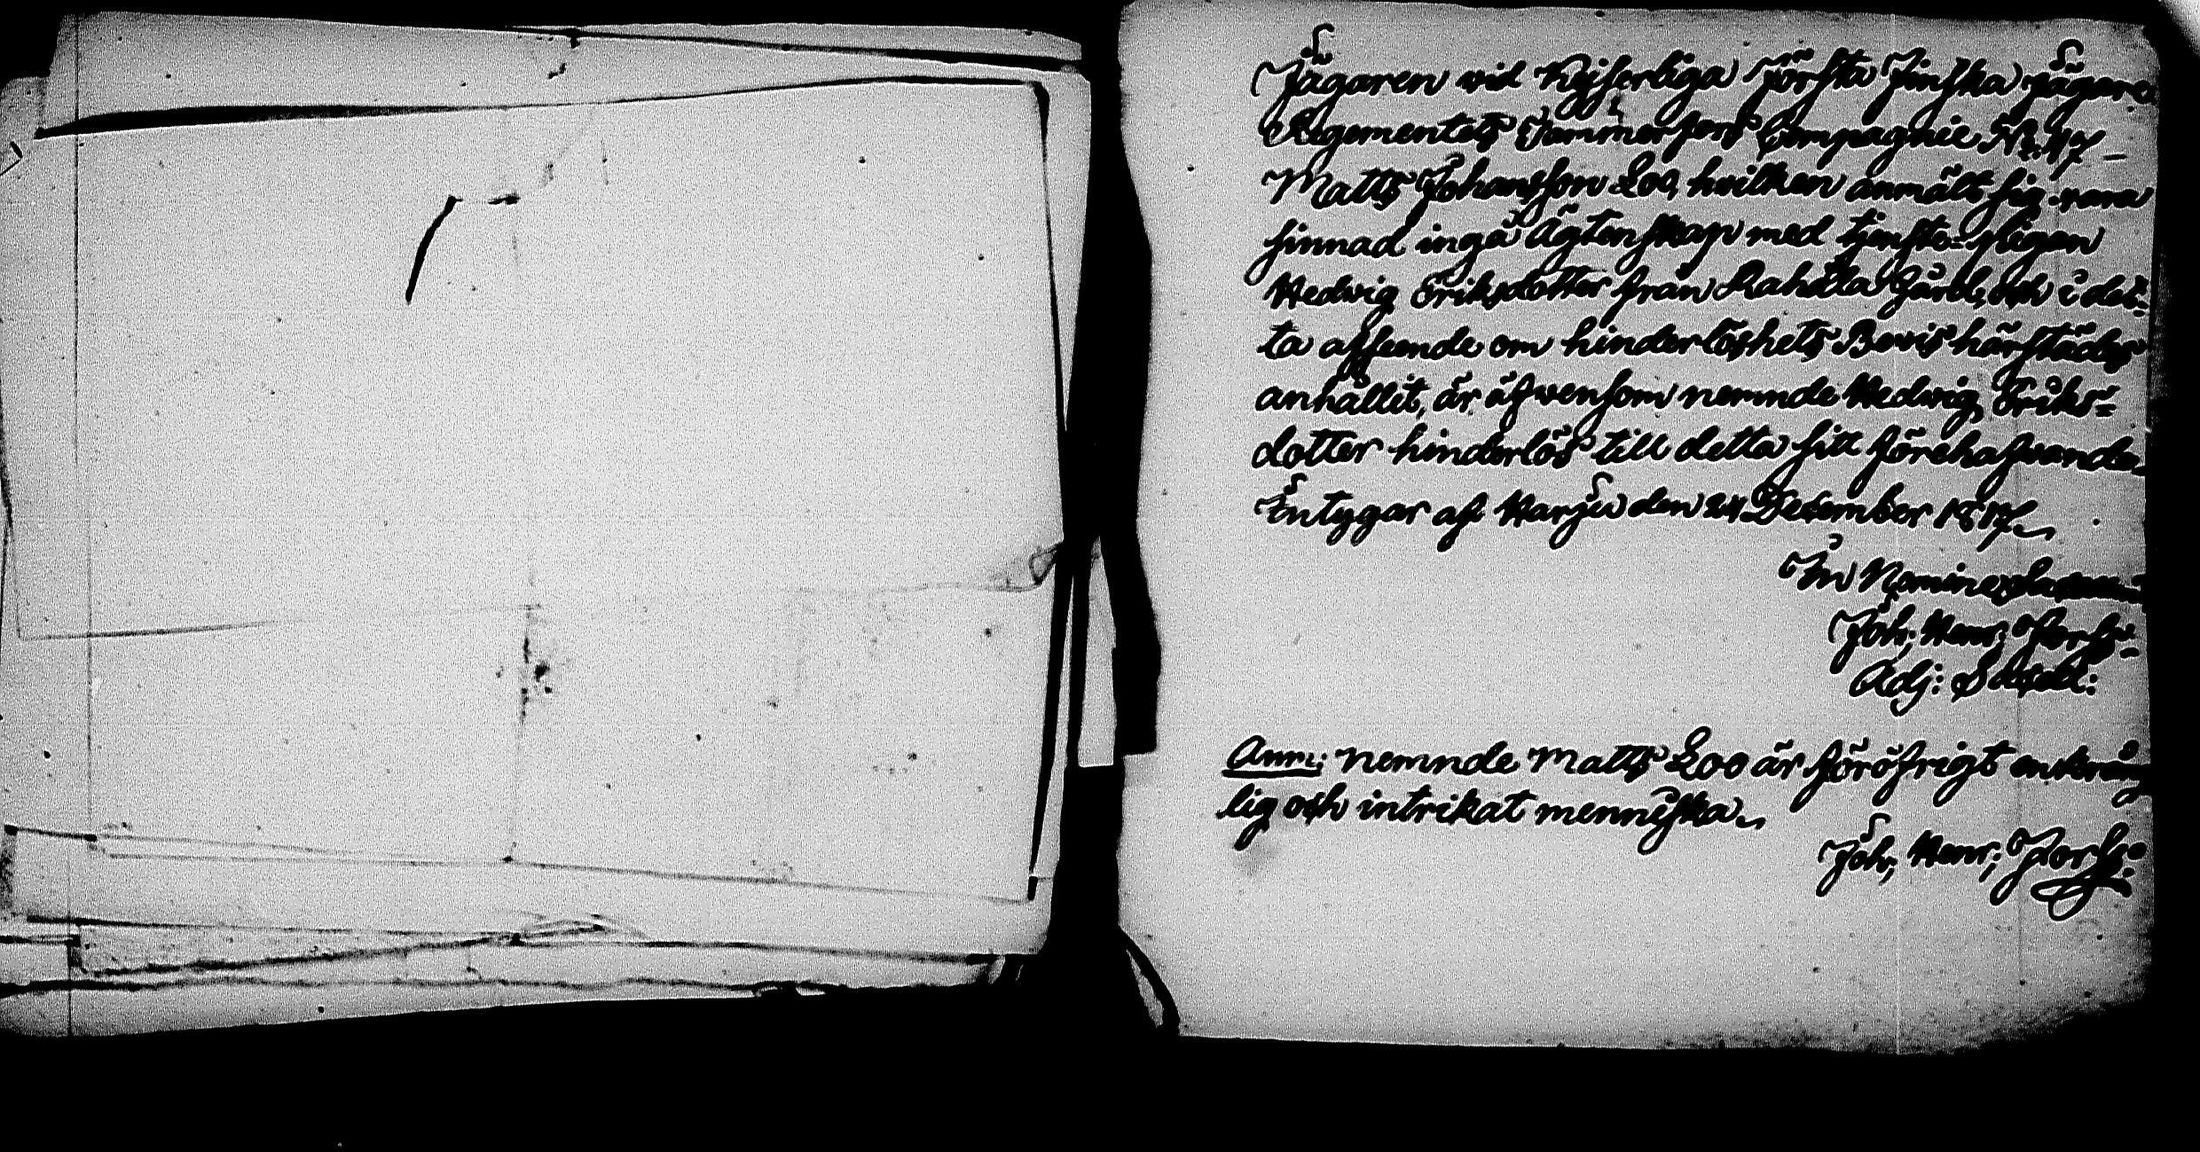 Jägaren vid Kejserliga Första Finska Jägare
Regementets Tammerfors Compagnie N: 47
Matts Johansson Loo, hvilken anmält sig vara
sinnad ingå Ägtenskap med tjenste-pigan
Hedwig Eriksdotter från Rahola Gård, och i det-
ta afseende om hinderlöshets Bevis härstädes
anhållit, är äfvensom nemnde Hedwig Eriks-
dotter hinderlös till detta sitt förehafvande.
Intygar af Harju den 24 December 1817.
In Nomine
Joh: Henr: Forss:
Adj: Sacell:
Anm: nemnde Matts Loo är föröfrigt en krång
lig och intrikat menniska.
Joh: Henr: Forss: